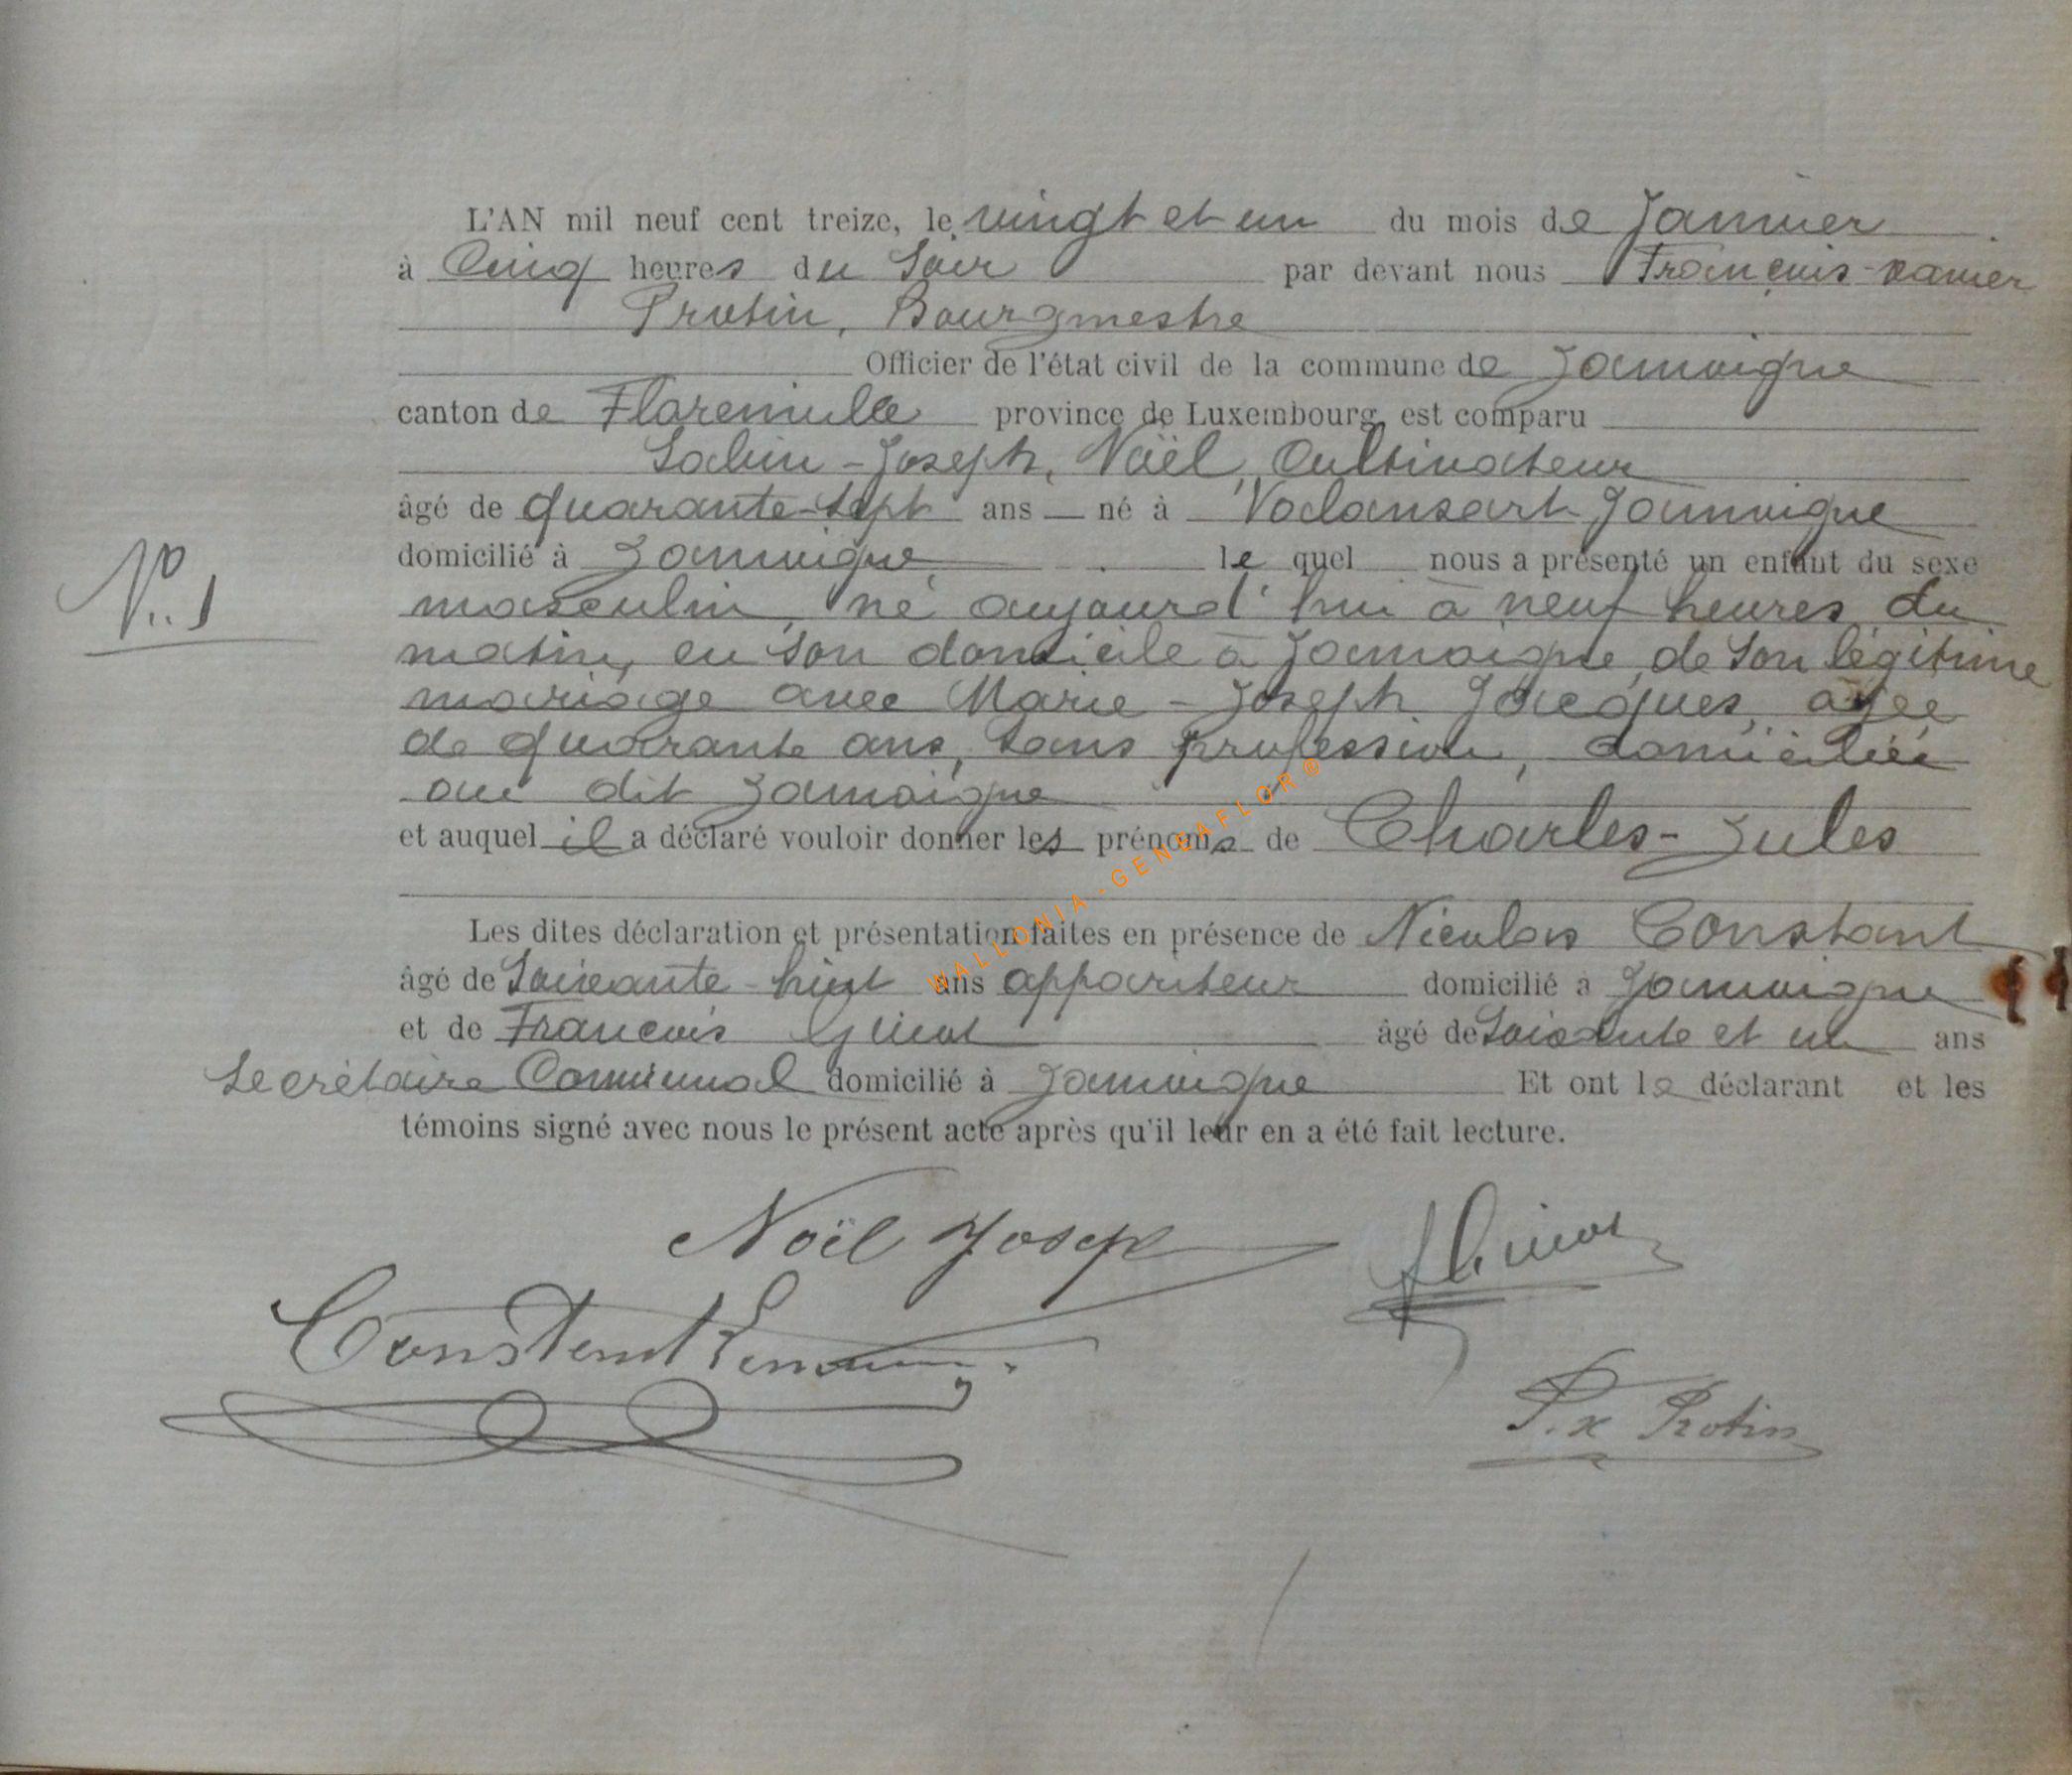 L'AN mil neuf cent treize, le vingt et un du mois de Janvier
à Cinq heures du Soir par devant nous François-xavier
Protin, Bourgmestre
Officier de l'état civil de la commune de Jamoigne
canton de Florenville province de Luxembourg, est comparu
Sabin-Joseph, Noël, Cultivateur
âgé de quarante-sept ans né à Valansart Jamoigne
domicilié à Jamoigne le quel nous a présenté un enfant du sexe
N° 1
masculin, né aujourd'hui à neuf heures du
matin, en son domicile à Jamoigne, de Son légitime
mariage avec Marie-Joseph Jacques, agée
de quarante ans, sans profession, domiciliée
au dit Jamoigne
et auquel il a déclaré vouloir donner les prénoms de Charles-Jules
Les dites déclaration et présentation faites en présence de Nicolas Constant
âgé de Soixante-huit ans appariteur domicilié à Jamoigne
et de François âgé de Soixante et un ans
Secrétaire Communal domicilié à Jamoigne Et ont le déclarant et les
témoins signé avec nous le présent acte après qu'il leur en a été fait lecture.
Noël Joseph
Constant
F.x Protin
WALLONIA-GENEAFLOR®